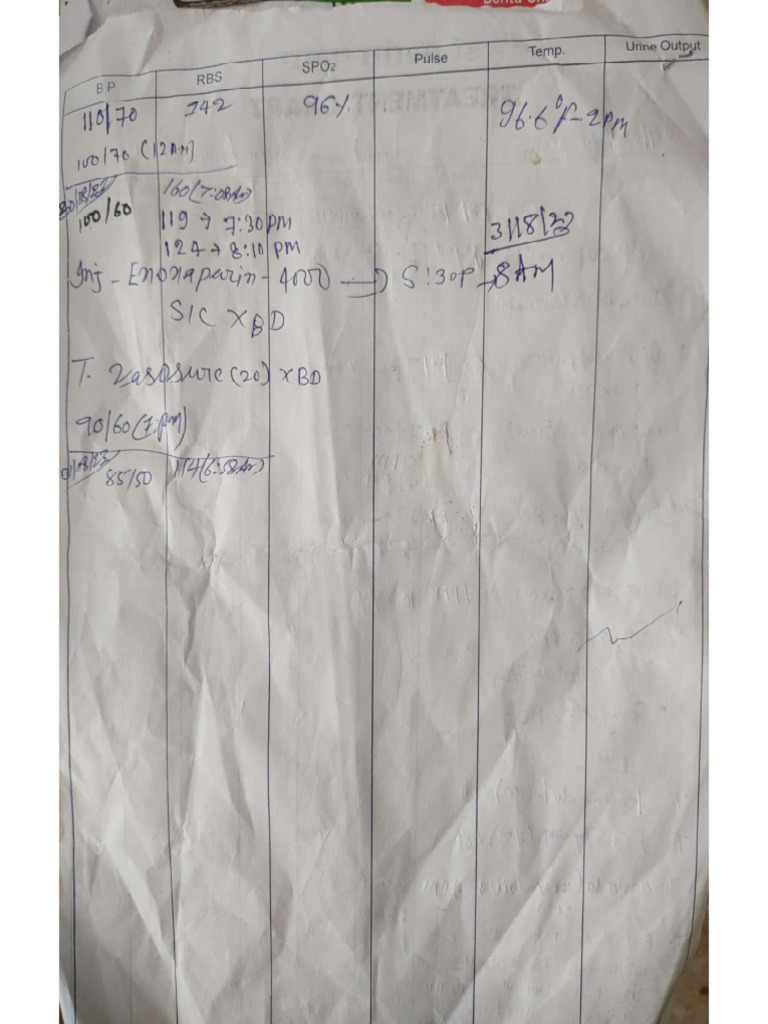 BP RBS SPO2 Pulse Temp. Urine Output
110/70 242 96% 96.6°f-2pm
100/70 (12AM)
30/08/23 160(7:08Am)
100/60 119 → 7:30 PM 31/8/23
124 → 8:10 PM
Inj - Enoxaparin - 4000 → 5:30P → 8AM
S/C X BD
T. (20) x BD
90/60 (7:pm)
01/08/23 85/50 114(6:58Am)